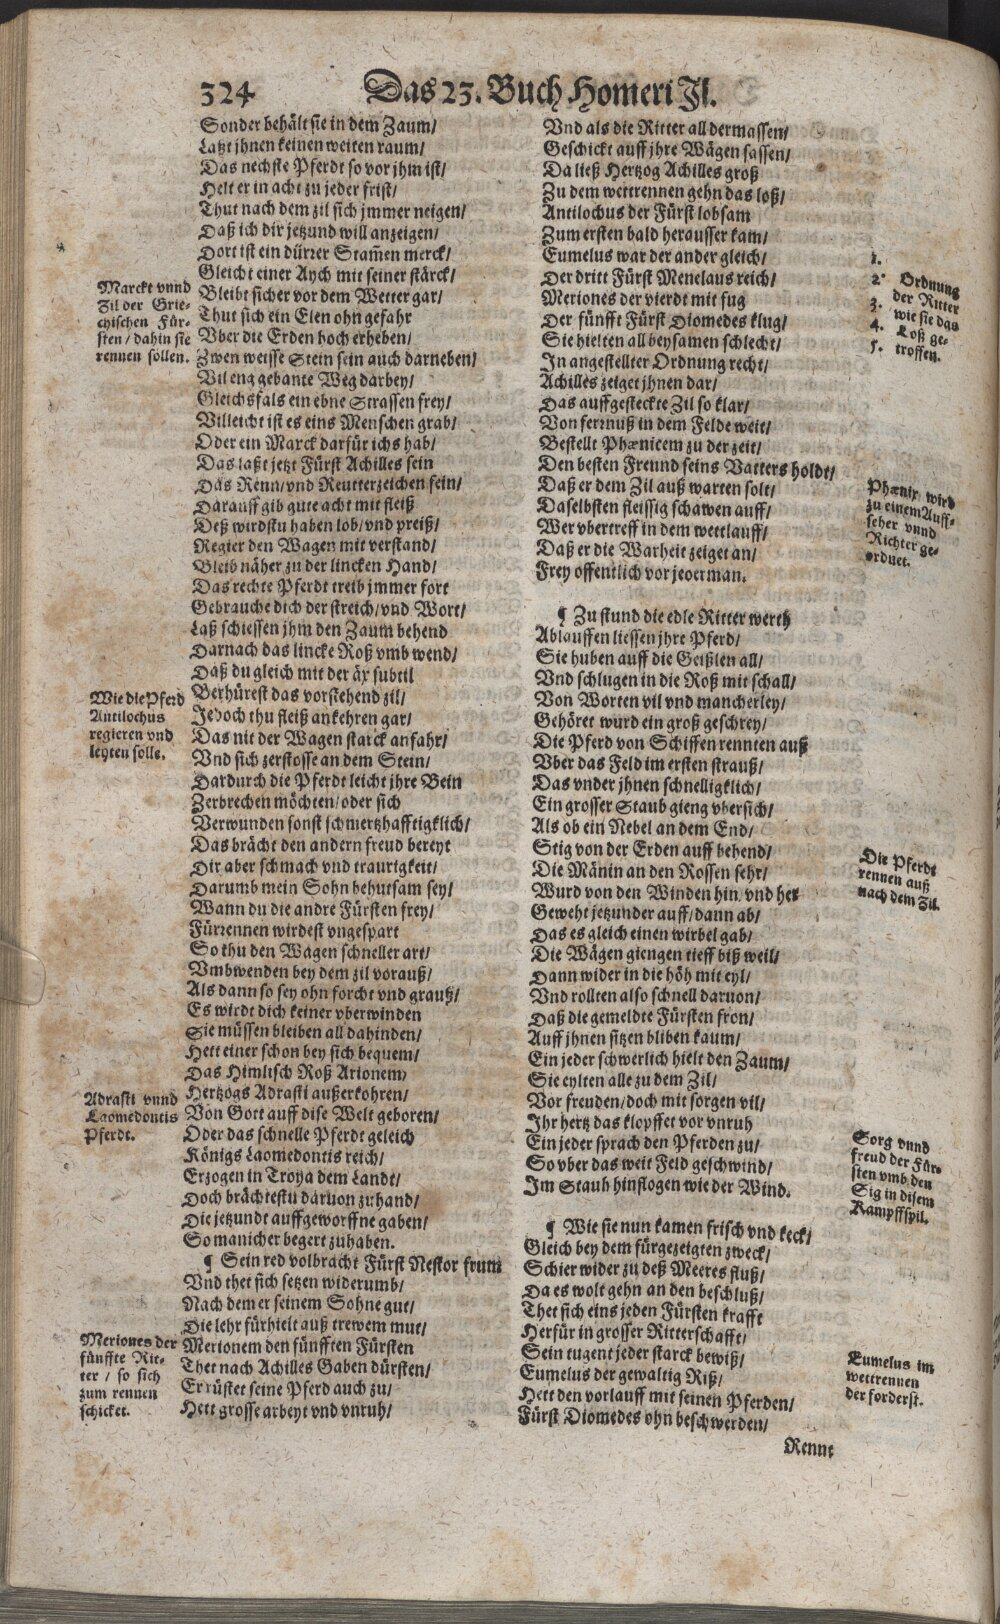 324
Das 23. Buch Homeri Jl.
Sonder behält sie in dem Zaum/
Latzt jhnen keinen weiten raum/
Das nechste Pferdt so vor jhm ist/
Helt er in acht zu jeder frist/
Thut nach dem zil sich jmmer neigen/
Daß ich dir jetzund will anzeigen/
Dort ist ein dürrer Stam̃en merck/
Gleicht einer Aych mit seiner stärck/
Bleibt sicher vor dem Wetter gar/
Thut sich ein Elen ohn gefahr
Vber die Erden hoch erheben/
Zwen weisse Stein sein auch darneben/
Vil eng gebante Weg darbey/
Gleichsfals ein ebne Strassen frey/
Villeicht ist es eins Menschen grab/
Oder ein Marck darfür ichs hab/
Das laßt jetzt Fürst Achilles sein
Das Renn/vnd Reutterzeichen fein/
Darauff gib gute acht mit fleiß
Deß wirdstu haben lob/vnd preiß/
Regier den Wagen mit verstand/
Bleib näher zu der lincken Hand/
Das rechte Pferdt treib jmmer fort
Gebrauche dich der streich/vnd Wort/
Laß schiessen jhm den Zaum behend
Darnach das lincke Roß vmb wend/
Daß du gleich mit der äx subtil
Berhürest das vorstehend zil/
Jedoch thu fleiß ankehren gar/
Das nit der Wagen starck anfahr/
Vnd sich zerstosse an dem Stein/
Dardurch die Pferdt leicht jhre Bein
Zerbrechen möchten/oder sich
Verwunden sonst schmertzhafftigklich/
Das brächt den andern freud bereyt
Dir aber schmach vnd traurigkeit/
Darumb mein Sohn behutsam sey/
Wann du die andre Fürsten frey/
Fürrennen wirdest vngespart
So thu den Wagen schneller art/
Vmbwenden bey dem zil vorauß/
Als dann so sey ohn forcht vnd grauß/
Es wirdt dich keiner vberwinden
Sie müssen bleiben all dahinden/
Hett einer schon bey sich bequem/
Das Himlisch Roß Arionem/
Hertzogs Adrasti außerkohren/
Von Gott auff dise Welt geboren/
Oder das schnelle Pferdt geleich
Königs Laomedontis reich/
Erzogen in Troya dem Landt/
Doch brächtestu daruon zuhand/
Die jetzundt auffgeworffne gaben/
So manicher begert zuhaben.
¶ Sein red volbracht Fürst Nestor frum
Vnd thet sich setzen widerumb/
Nach dem er seinem Sohne gut/
Die lehr fürhielt auß trewem mut/
Merionem den fünfften Fürsten
Thet nach Achilles Gaben dürsten/
Er rüstet seine Pferd auch zu/
Hett grosse arbeyt vnd vnruh/
Marckt vnnd
Zil der Grie-
chischen Für-
sten / dahin sie
rennen sollen.
Wie die Pferd
Antilochus
regieren vnd
leyten solle.
Adrasti vnnd
Laomedontis
Pferdt.
Meriones der
fünffte Rit-
ter / so sich
zum rennen
schicket.
Vnd als die Ritter all dermassen/
Geschickt auff jhre Wägen sassen/
Da ließ Hertzog Achilles groß
Zu dem wettrennen gehn das loß/
Antilochus der Fürst lobsam
Zum ersten bald herausser kam/
Eumelus war der ander gleich/
Der dritt Fürst Menelaus reich/
Meriones der vierdt mit fug
Der fünfft Fürst Diomedes klug/
Sie hielten all beysamen schlecht/
In angestellter Ordnung recht/
Achilles zeiget jhnen dar/
Das auffgesteckte Zil so klar/
Von ferrnuß in dem Felde weit/
Bestellt Phænicem zu der zeit/
Den besten Freund seins Vatters holdt/
Daß er dem Zil auß warten solt/
Daselbsten fleissig schawen auff/
Wer vbertreff in dem wettlauff/
Daß er die Warheit zeiget an/
Frey offentlich vor jederman.
¶ Zu stund die edle Ritter werth
Ablauffen liessen jhre Pferd/
Sie huben auff die Geißlen all/
Vnd schlugen in die Roß mit schall/
Von Worten vil vnd mancherley/
Gehöret wurd ein groß geschrey/
Die Pferd von Schiffen rennten auß
Vber das Feld im ersten strauß/
Das vnder jhnen schnelligklich/
Ein grosser Staub gieng vbersich/
Als ob ein Nebel an dem End/
Stig von der Erden auff behend/
Die Mänin an den Rossen sehr/
Wurd von den Winden hin vnd her
Geweht jetzunder auff/dann ab/
Das es gleich einen wirbel gab/
Die Wägen giengen tieff biß weil/
Dann wider in die höh mit eyl/
Vnd rollten also schnell daruon/
Daß die gemeldte Fürsten fron/
Auff jhnen sitzen bliben kaum/
Ein jeder schwerlich hielt den Zaum/
Sie eylten alle zu dem Zil/
Vor freuden/doch mit sorgen vil/
Ihr hertz das klopffet vor vnruh
Ein jeder sprach den Pferden zu/
So vber das weit Feld geschwind/
Im Staub hinflogen wie der Wind.
¶ Wie sie nun kamen frisch vnd keck/
Gleich bey dem fürgezeigten zweck/
Schier wider zu deß Meeres fluß/
Da es wolt gehn an den beschluß/
Thet sich eins jeden Fürsten krafft
Herfür in grosser Ritterschafft/
Sein tugent jeder starck bewiß/
Eumelus der gewaltig Riß/
Hett den vorlauff mit seinen Pferden/
Fürst Diomedes ohn beschwerden/
Rennt
1.
2.
3.
4.
5.
Ordnung
der Ritter
wie sie das
Loß ge-
troffen.
Phænix wird
zu einem Auff-
seher vnnd
Richter ge-
ordnet.
Die Pferdt
rennen auß
nach dem Zil.
Sorg vnnd
freud der Für-
sten vmb den
Sig in disem
Kampffspil.
Eumelus im
wettrennen
der forderst.